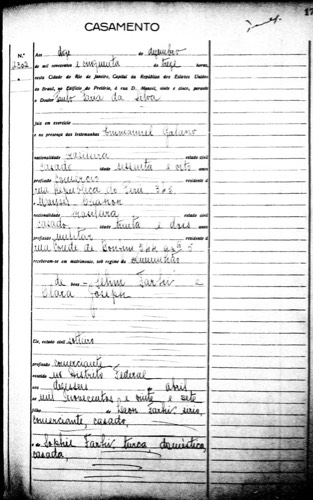 17
CASAMENTO
N.º Aos doze de dezembro
4302 de mil novecentos e cinquenta e três horas,
nesta Cidade do Rio de Janeiro, Capital da República dos Estados Unidos
do Brasil, no Edifício da Pretoria, à rua D. Manoel, vinte e cinco, perante
o Doutor da Silva
juiz em exercício
e na presença das testemunhas Emmanuel Galano
nacionalidade brasileira estado civil
casado idade sessenta e oito
profissão comércio residente à
rua República do Peru
nacionalidade brasileira estado civil
casado idade trinta e dois anos
profissão militar residente à
rua Conde de Bonfim
receberam-se em matrimônio, sob regime da comunhão
de bens Selim Tarhi e
Clara Joseph
Ele, estado civil solteiro
profissão comerciante
nascido no Distrito Federal
aos dezesseis de abril
de mil novecentos e vinte e sete
filho de Leon Tarhi, sírio,
comerciante, casado,
e de Sophie Tarhi, turca, doméstica,
casada,